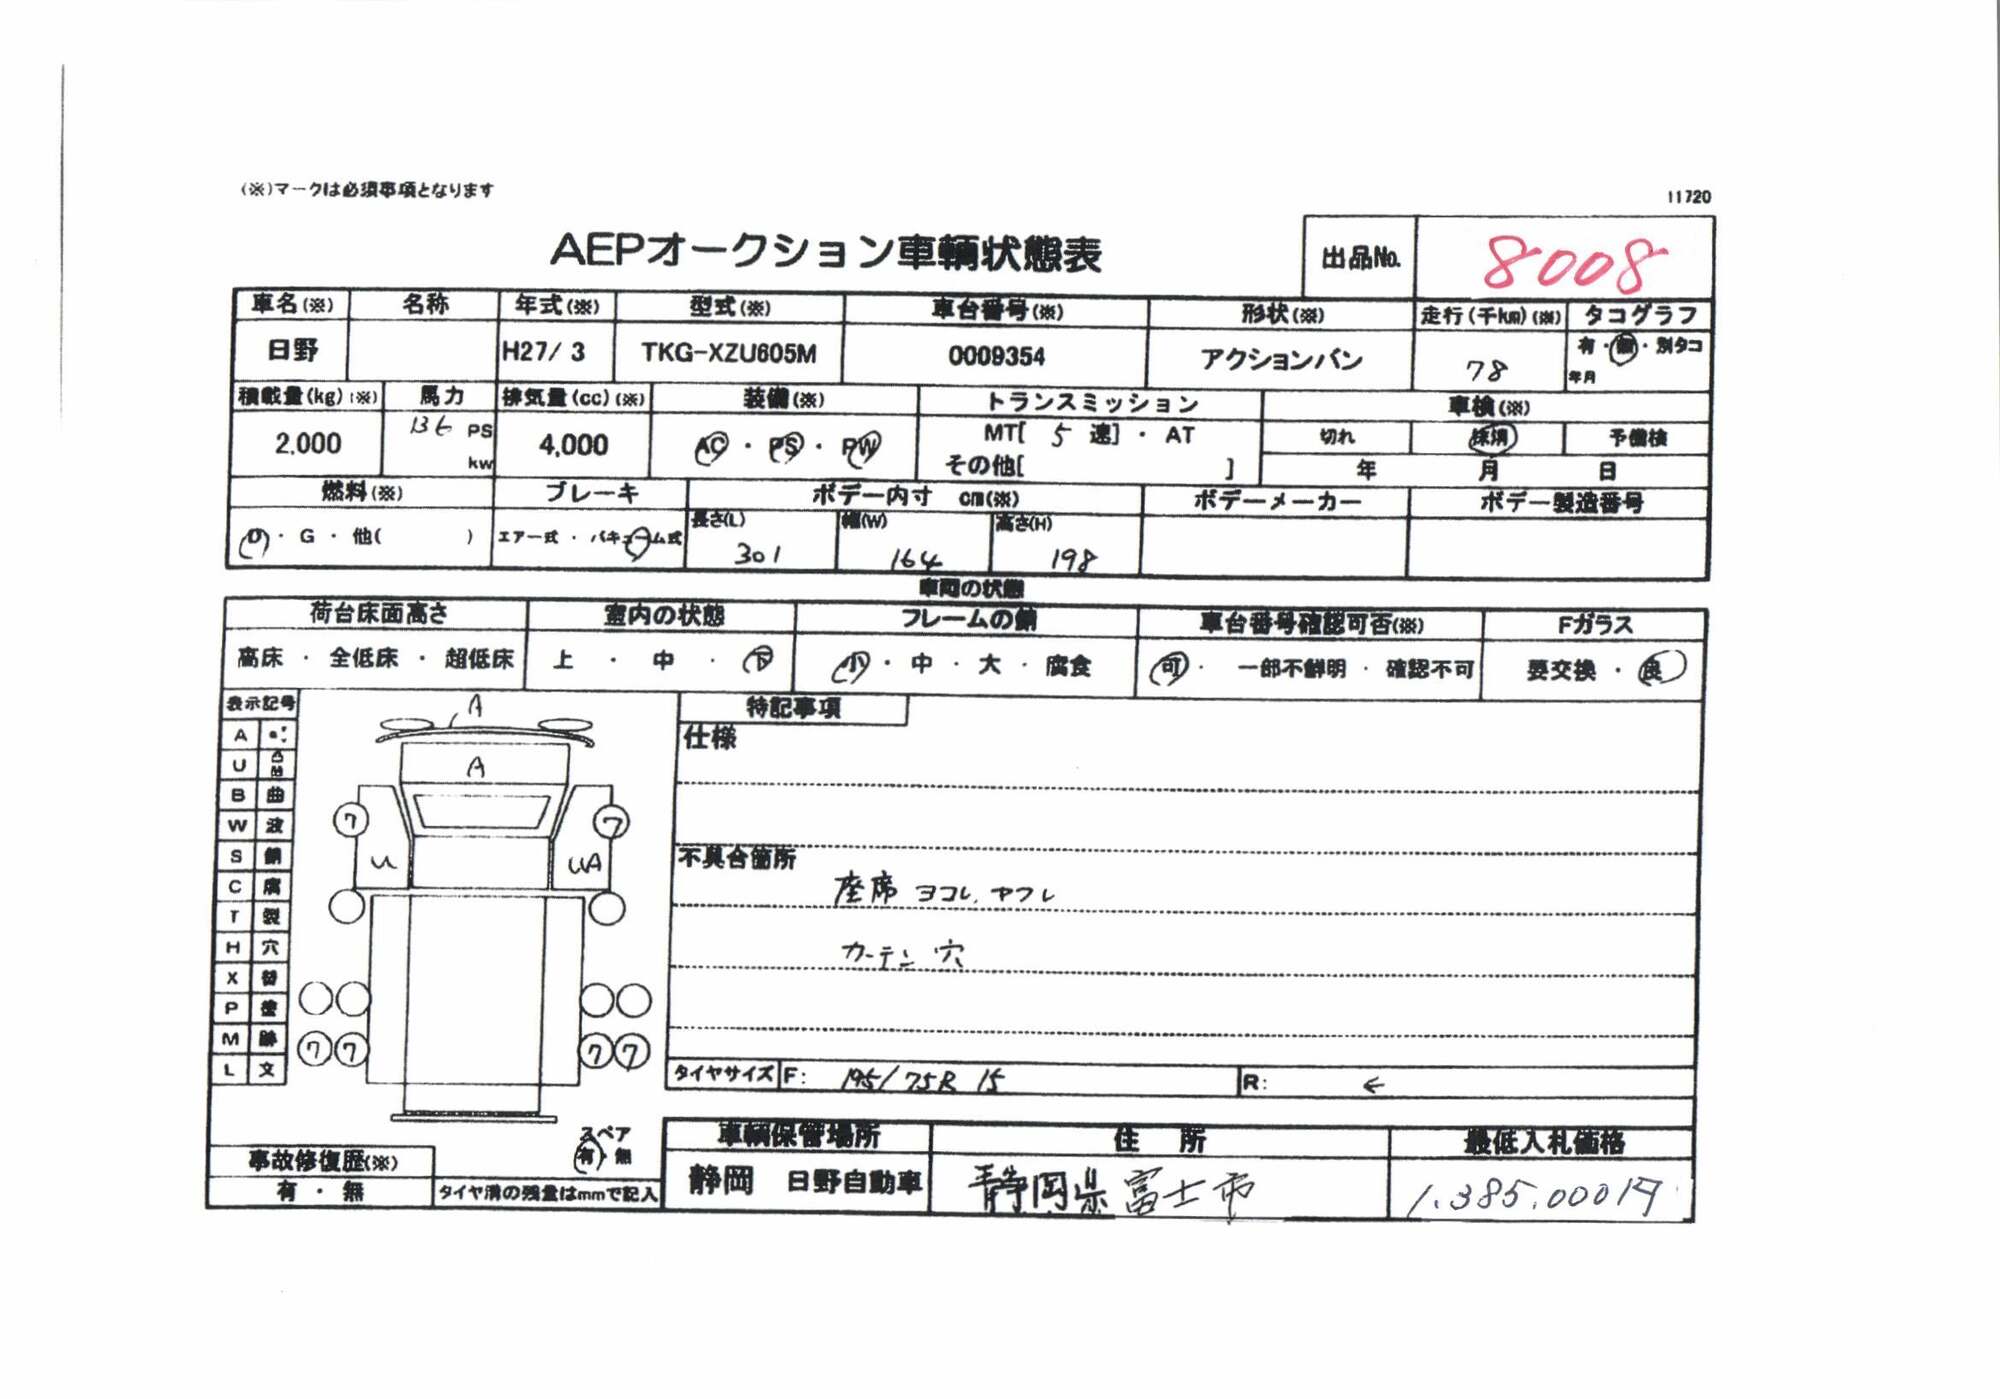 (※)マークは必須事項となります
11720
AEPオークション車輌状態表
出品No.
8008
車名(※) 名称 年式(※) 型式(※) 車台番号(※) 形状(※) 走行(千km)(※) タコグラフ
日野 H27/ 3 TKG-XZU605M 0009354 アクションバン 78 有・無・別タコ
年月
積載量(kg)(※) 馬力 排気量(cc)(※) 装備(※) トランスミッション 車検(※)
2,000 136 PS 4,000 AC ・ PS ・ PW MT[ 5 速] ・ AT 切れ 抹消 予備検
kw その他[ ] 年 月 日
燃料(※) ブレーキ ボデー内寸 cm(※) ボデーメーカー ボデー製造番号
D ・ G ・ 他( ) エアー式 ・ バキューム式 長さ(L) 301 幅(W) 164 高さ(H) 198
車両の状態
荷台床面高さ 室内の状態 フレームの錆 車台番号確認可否(※) Fガラス
高床 ・ 全低床 ・ 超低床 上 ・ 中 ・ 下 小 ・ 中 ・ 大 ・ 腐食 可 ・ 一部不鮮明 ・ 確認不可 要交換 ・ 良
表示記号
A
U 凸凹
B 曲
W 波
S 錆
C 腐
T 裂
H 穴
X 替
P 塗
M 跡
L 文
A
A
7 7
U UA
7 7 7 7
特記事項
仕様
不具合箇所
座席 ヨコレ、ヤフレ
カーテン 穴
タイヤサイズ F: 195/75R 15 R: ←
スペア
有・無
事故修復歴(※)
有 ・ 無
タイヤ溝の残量はmmで記入
車輌保管場所 住 所 最低入札価格
静岡 日野自動車 静岡県富士市 1.385.000円